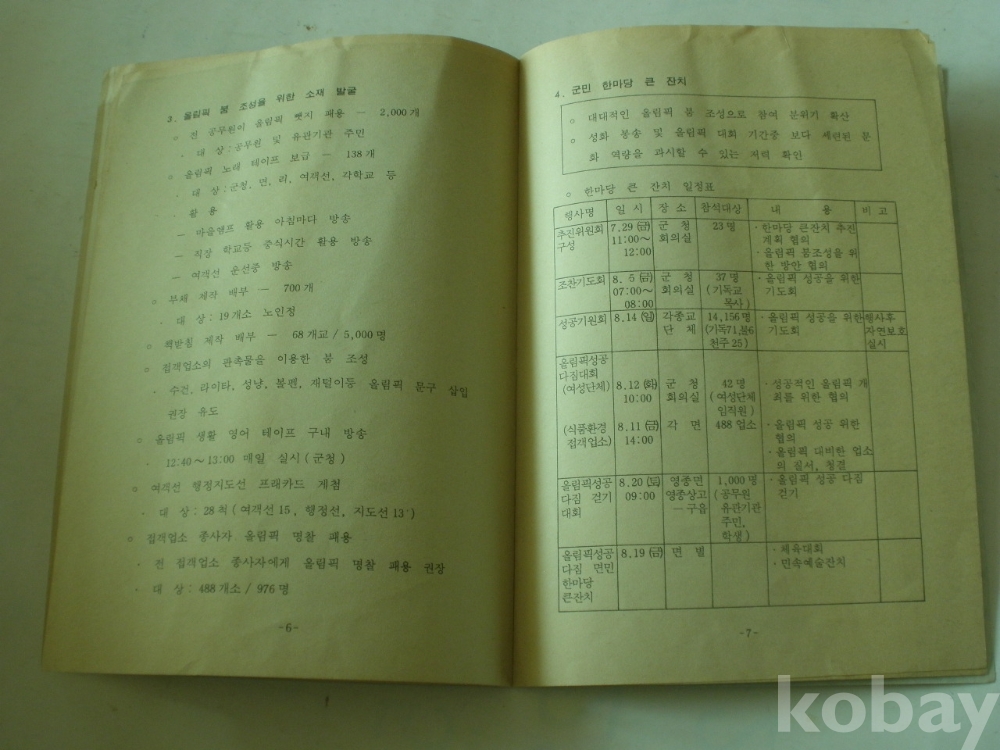 3. 올림픽 붐 조성을 위한 소재 발굴
○ 전 공무원이 올림픽 뺏지 패용 — 2,000개
· 대 상 : 공무원 및 유관기관 주민
○ 올림픽 노래 테이프 보급 — 138개
· 대 상 : 군청, 면, 리, 여객선, 각학교 등
· 활 용
— 마을앰프 활용 아침마다 방송
— 직장 학교등 중식시간 활용 방송
— 여객선 운선중 방송
○ 부채 제작 배부 — 700개
· 대 상 : 19개소 노인정
○ 책받침 제작 배부 — 68개교 / 5,000명
○ 접객업소의 판촉물을 이용한 붐 조성
· 수건, 라이타, 성냥, 볼펜, 재털이등 올림픽 문구 삽입
권장 유도
○ 올림픽 생활 영어 테이프 구내 방송
· 12:40∼13:00 매일 실시 (군청)
○ 여객선 행정지도선 프래카드 게첨
· 대 상 : 28척 (여객선 15, 행정선, 지도선 13)
○ 접객업소 종사자 올림픽 명찰 패용
· 전 접객업소 종사자에게 올림픽 명찰 패용 권장
· 대 상 : 488개소 / 976명
-6-
4. 군민 한마당 큰 잔치
○ 대대적인 올림픽 붐 조성으로 참여 분위기 확산
○ 성화 봉송 및 올림픽 대회 기간중 보다 세련된 문
화 역량을 과시할 수 있는 저력 확인
○ 한마당 큰 잔치 일정표
행사명 일 시 장 소 참석대상 내 용 비 고
추진위원회 7.29(금) 군 청 23명 · 한마당 큰잔치 추진
구성 11:00∼ 회의실 계획 협의
12:00 · 올림픽 붐조성을 위
한 방안 협의
조찬기도회 8. 5(금) 군 청 37명 · 올림픽 성공을 위한
07:00∼ 회의실 (기독교 기도회
08:00 목사)
성공기원회 8.14(일) 각종교 14,156명 · 올림픽 성공을 위한 행사후
단 체 (기독71,불6 기도회 자연보호
천주 25) 실시
올림픽성공
다짐대회 8.12(화) 군 청 42명 · 성공적인 올림픽 개
(여성단체) 10:00 회의실 (여성단체 최를 위한 협의
임직원)
(식품환경 8.11(금) 각 면 488업소 · 올림픽 성공 위한
접객업소) 14:00 협의
· 올림픽 대비한 업소
의 질서, 청결
올림픽성공 8.20(토) 영종면 1,000명 · 올림픽 성공 다짐
다짐 걷기 09:00 영종상고 (공무원 걷기
대회 — 구읍 유관기관
주민,
학생)
올림픽성공 8.19(금) 면 별 · 체육대회
다짐 면민 · 민속예술잔치
한마당
큰잔치
-7-
kobay